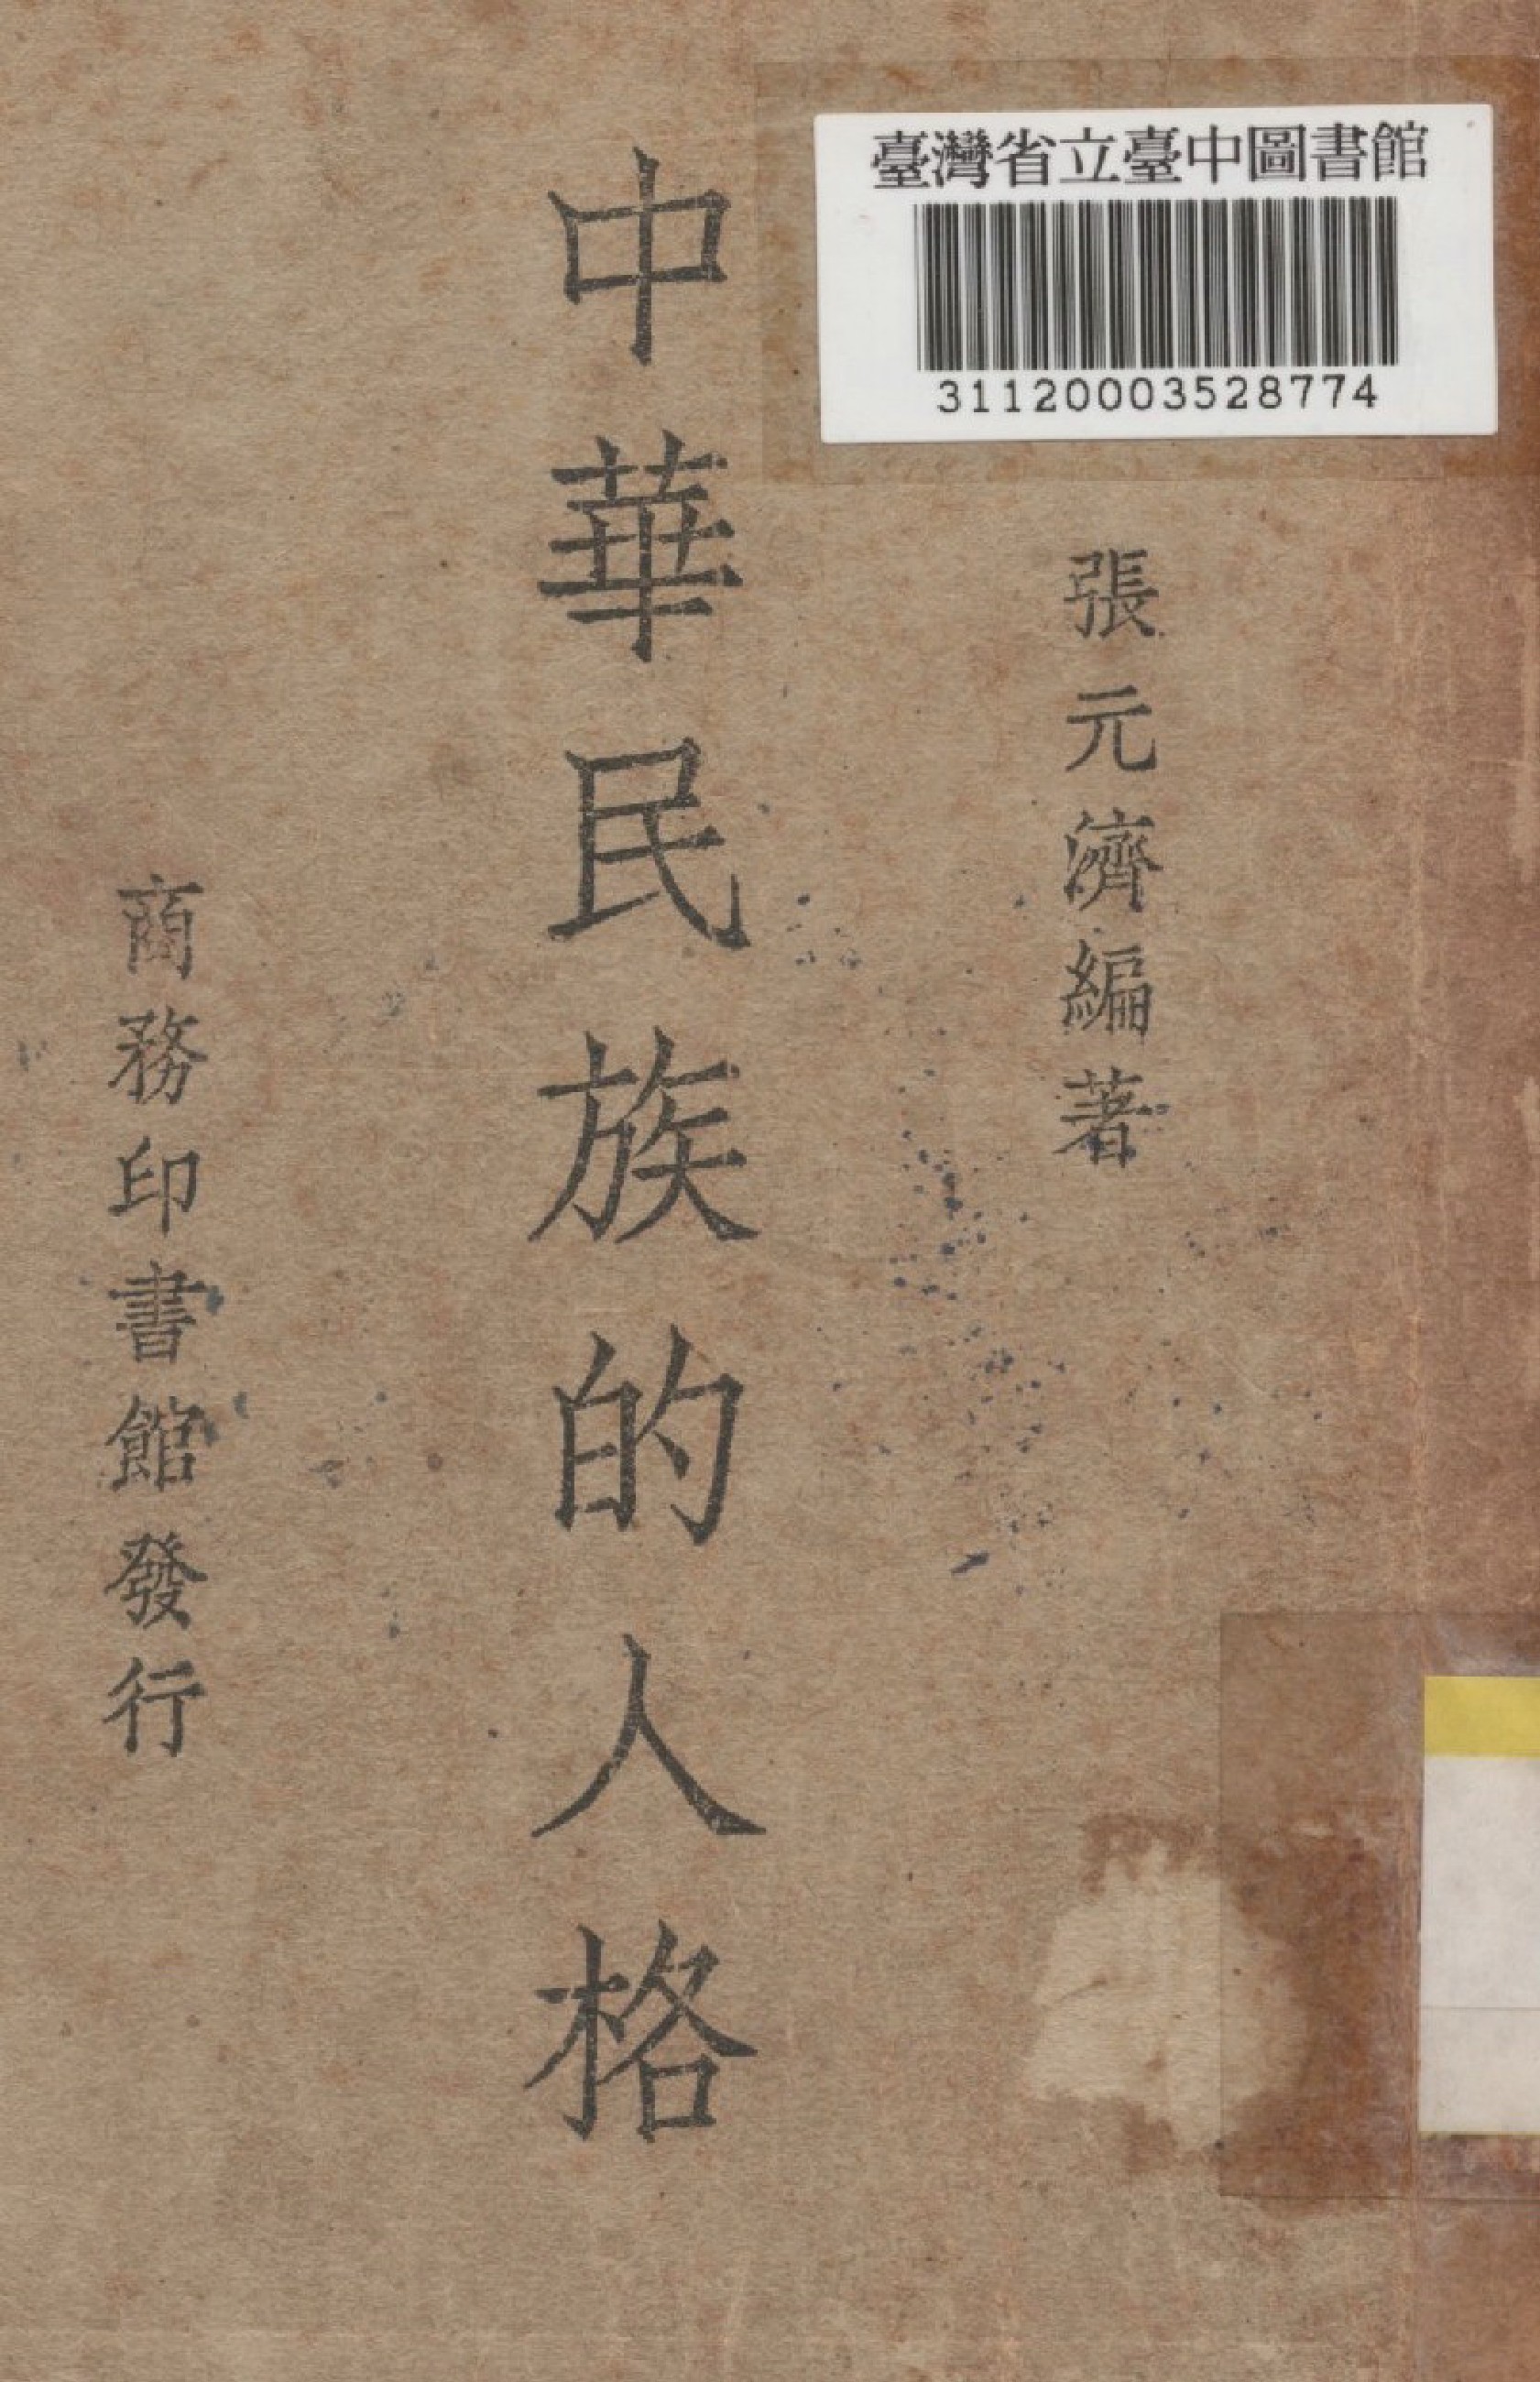 臺灣省立臺中圖書館
31120003528774
張元濟編著
中華民族的人格
商務印書館發行